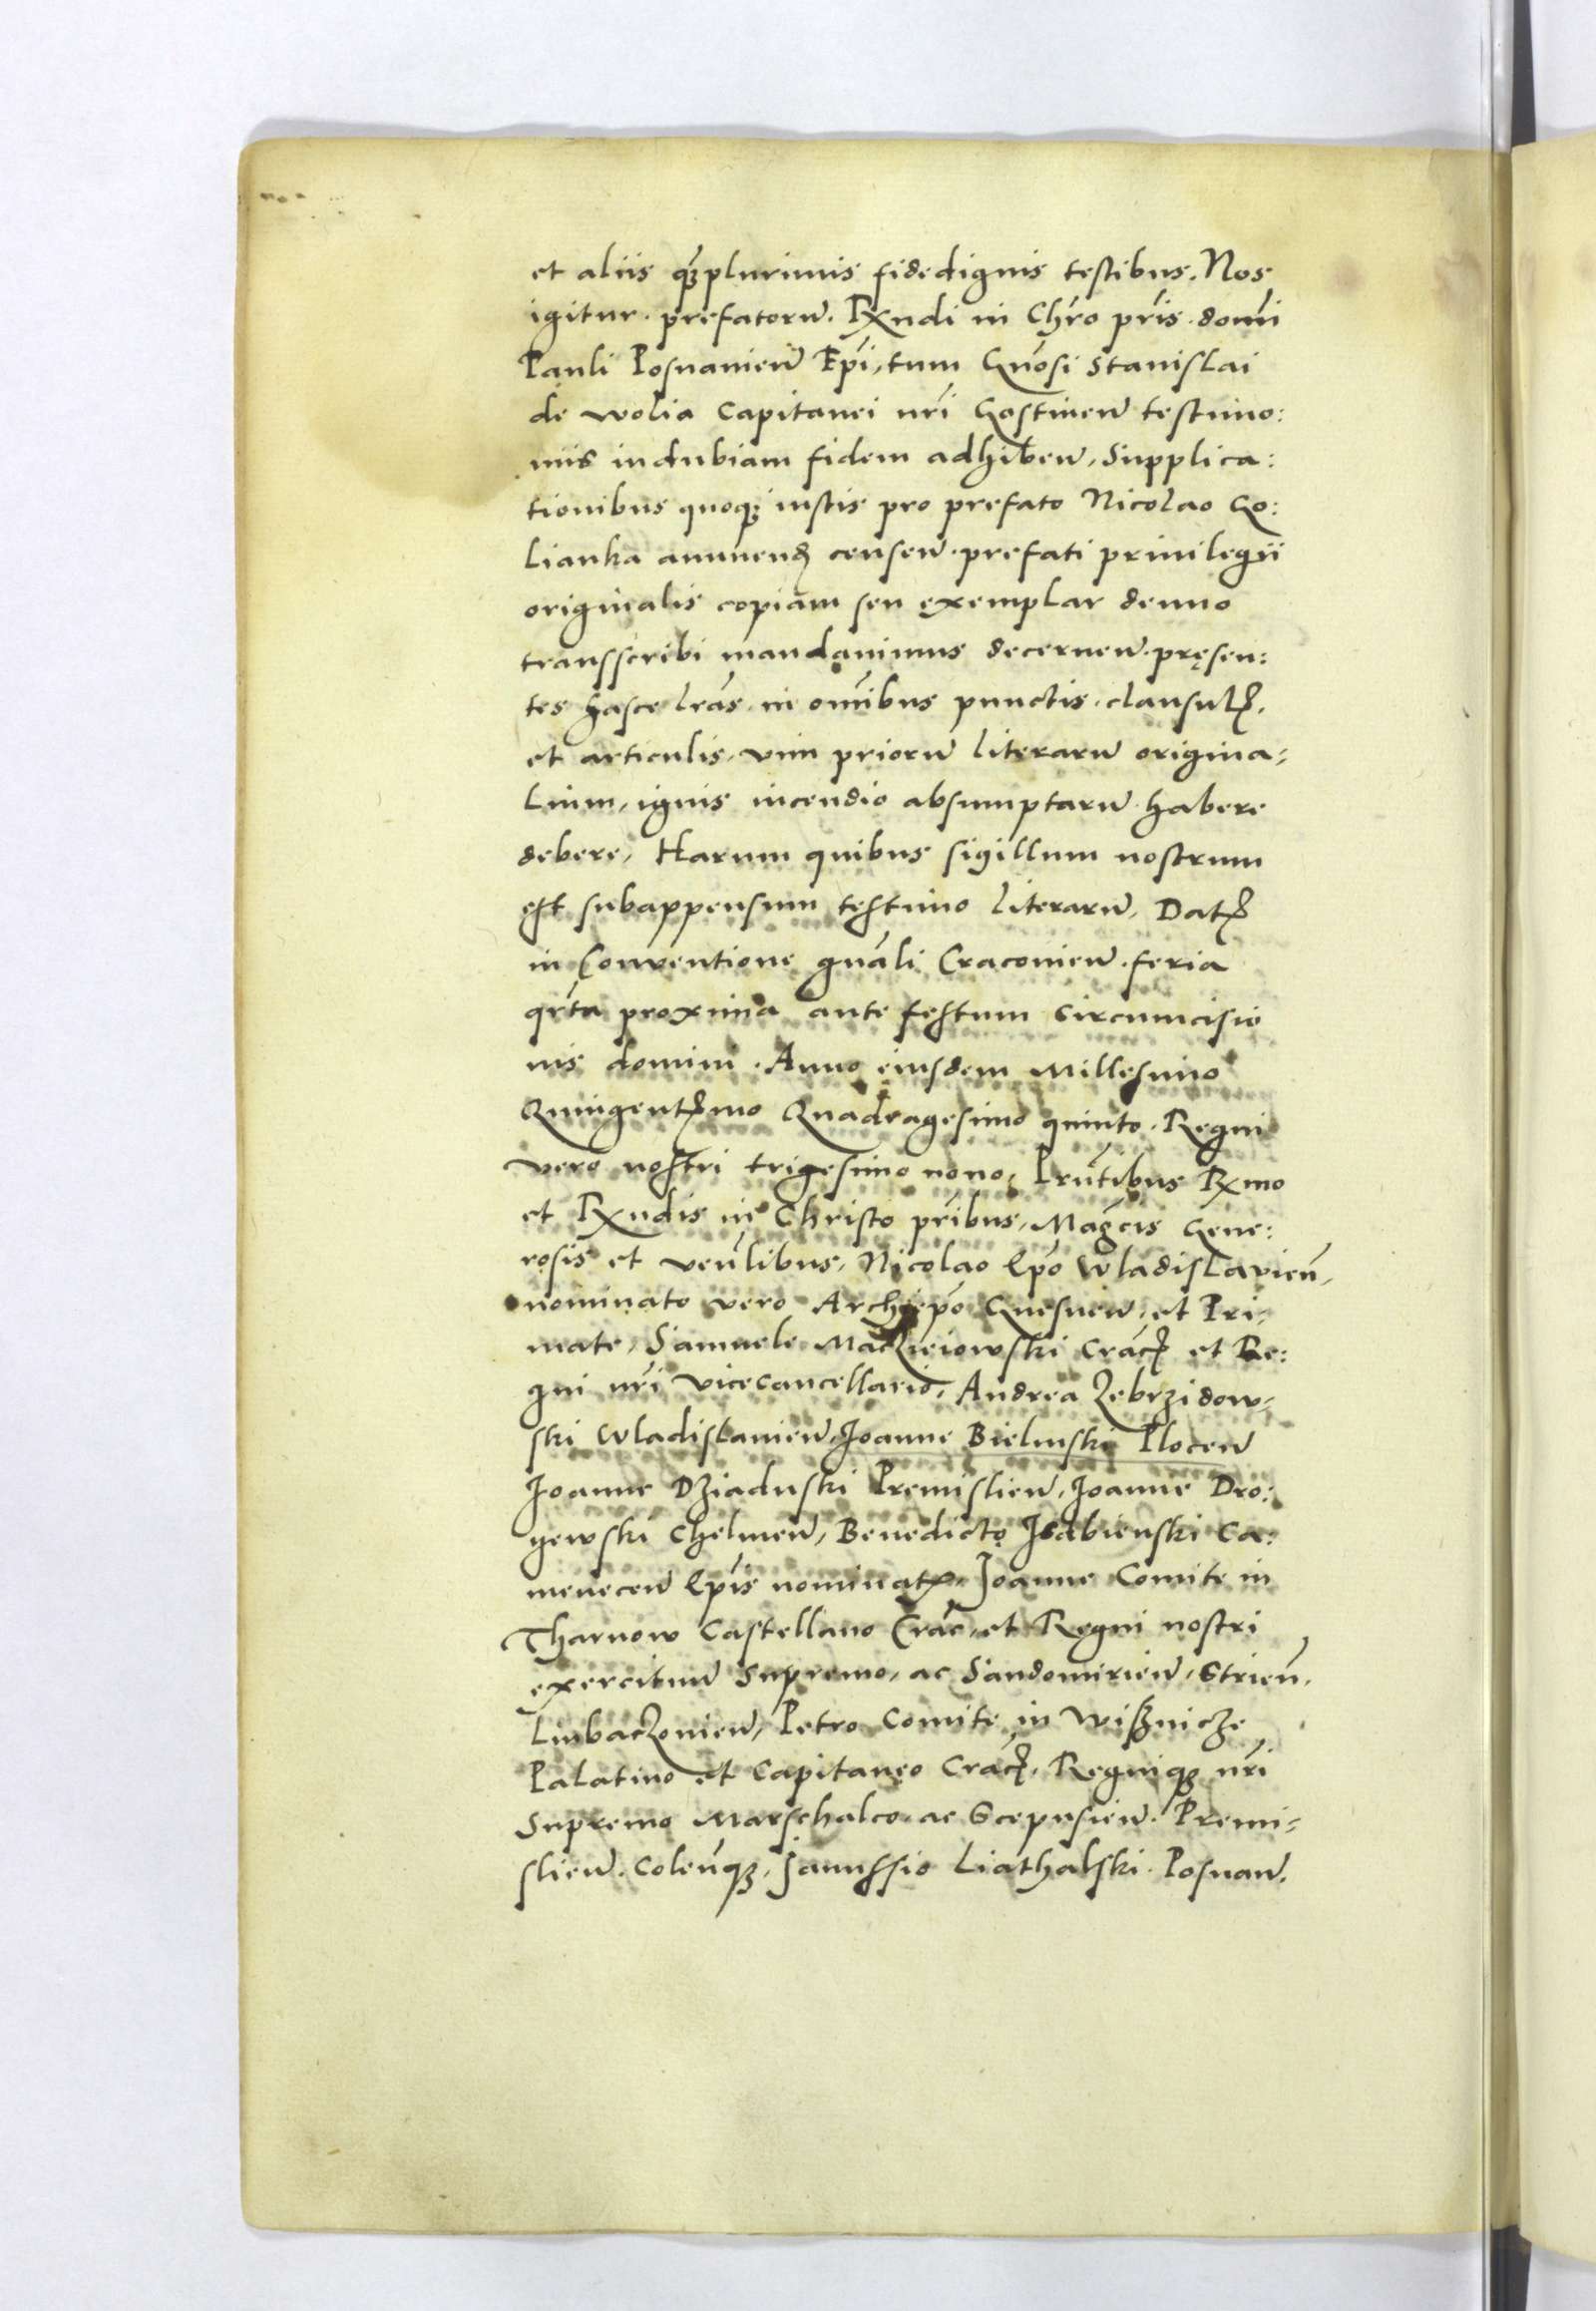 et aliis q̃ꝫplurimis fidedignis testibus. Nos
igitur. prefatorũ. Rx̃ndi in Chr̃o pr̃is. domĩ
Pauli Posnanieñ Ep̃i, tum Gñosi Stanislai
de wolia Capitanei nr̃i Gostineñ testimo:
niis indubiam fidem adhibeñ, Supplica:
tionibus quoqꝫ iustis pro prefato Nicolao Go:
lianka annuenđ censeñ. prefati priuilegii
originalis copiam seu exemplar denuo
transscribi mandauimus decerneñ. pręsen:
tes hasce lr̃as. in om̃ibus punctis. clausulꝭ.
et articulis, vim priorũ literarũ origina,
lium, ignis incendio absumptarũ. habere
debere, Harum quibus sigillum nostrum
est subappensum testimo literarũ, Datꝭ
in Conventione gñali Cracouieñ. feria
qr̃ta proxima ante festum Circumcisio
nis domini. Anno eiusdem Millesimo
Quingentꝭmo Quadragesimo quinto. Regni
vero nostri trigesimo nono, Prñtibus Rx̃mo
et Rx̃ndis in Christo pr̃ibus, Mag̃cis Gene:
rosis et veñlibus, Nicolao Ep̃o Wladislavieñ,
nominato vero Archiep̃o Gnesneñ, et Pri,
mate, Samuele Maczieiowski Crac̃ꝭ et Re:
gni nr̃i Vicecancellario, Andrea Zebrzidow,
ski Wladislauieñ, Joanne Bielinski Ploceñ
Joanne Dziaduski Premislieñ, Joanne Dro:
gewski Chelmeñ, Benedicto Isabienski Ca:
meneceñ Ep̃is nominatꝭ, Joanne Comite in
Tharnow Castellano Crac̃, et Regni nostri
exercituũ Supremo, ac Sandomirieñ, Strieñ,
Liubaczouieñ, Petro Comite in Wisznicze
Palatino et Capitaneo Crac̃ꝭ, Regniqꝫ nr̃i
Supremo Marschalco. ac Scepusieñ. Premi,
slieñ. Coleñqꝫ, Janussio Liathalski. Posnañ.